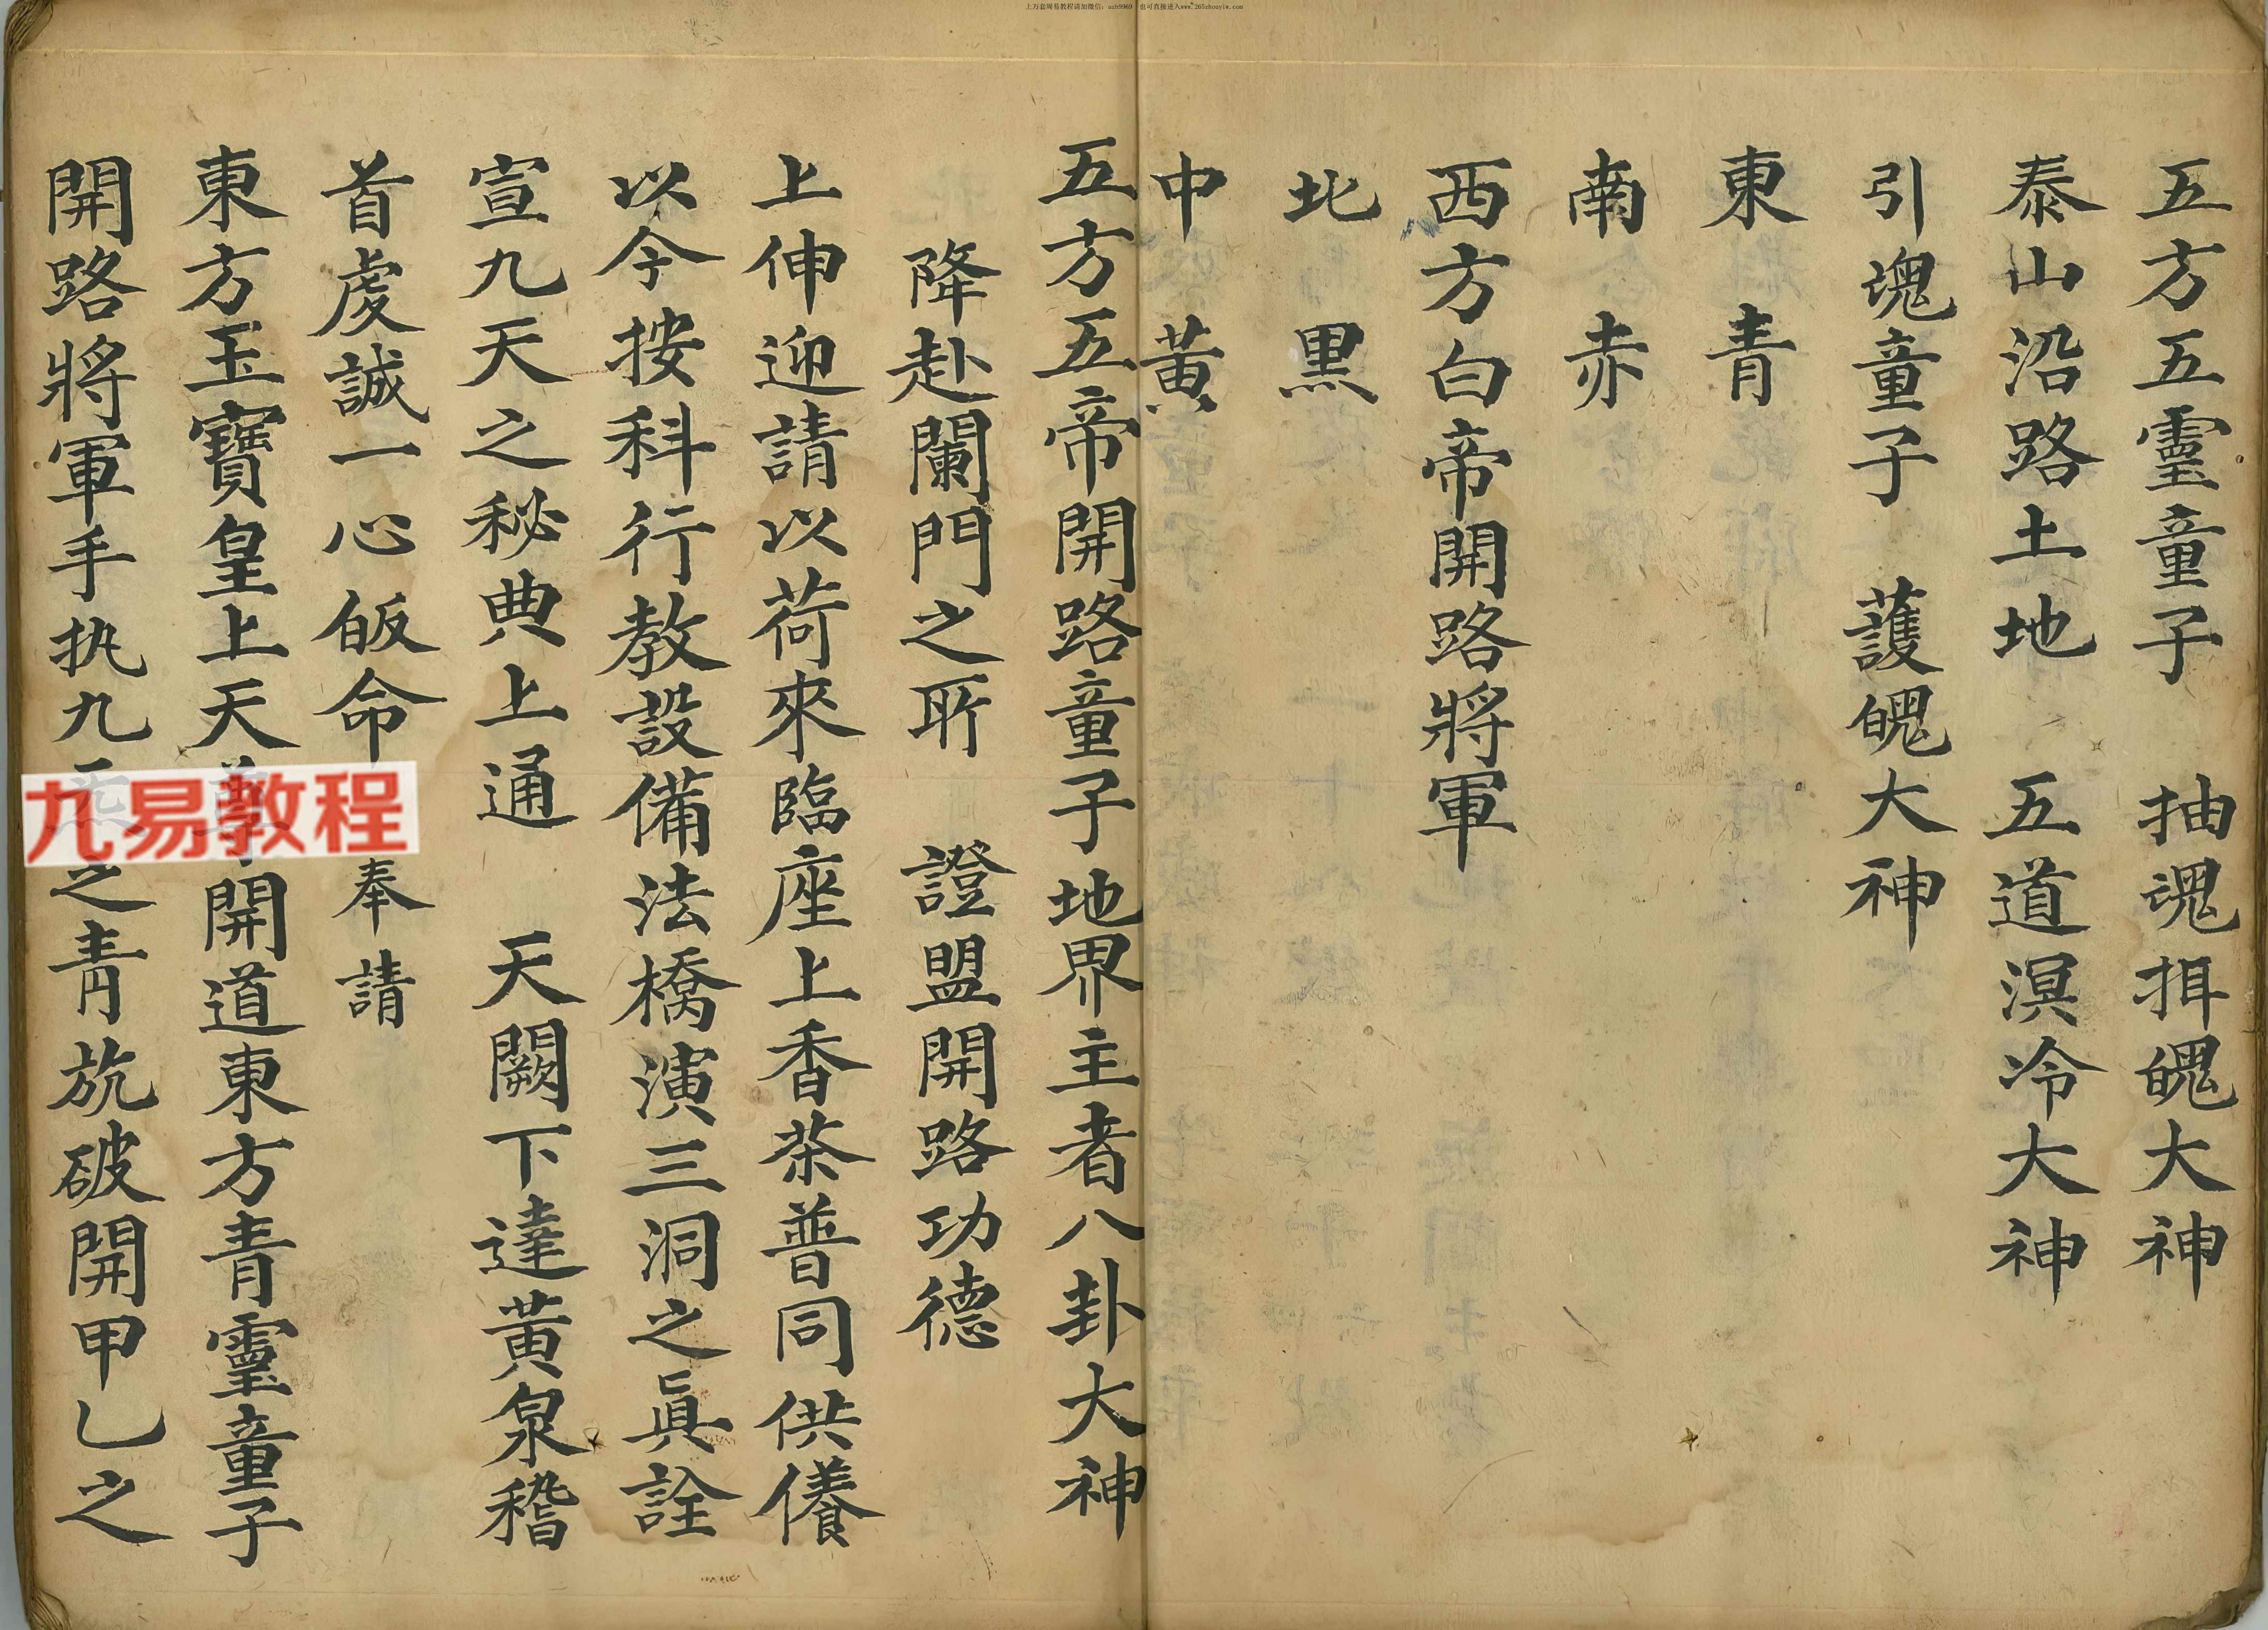 上万套周易教程请加微信：auh9969 也可直接进入www.265zhouyiw.com
五方五靈童子 抽魂挕魄大神
泰山沿路土地 五道溟冷大神
引魂童子 護魄大神
東 青
南 赤
西方白帝開路將軍
北 黑
中 黃
五方五帝開路童子地界主者八卦大神
降赴闌門之所 證盟開路功德
上伸迎請以荷來臨座上香茶普同供儀
以今按科行教設備法橋演三洞之眞詮
宣九天之秘典上通 天闕下達黃泉稽
首虔誠一心皈命 奉請
東方玉寶皇上天尊開道東方青靈童子
開路將軍手执九炁之青旂破開甲乙之
九易教程